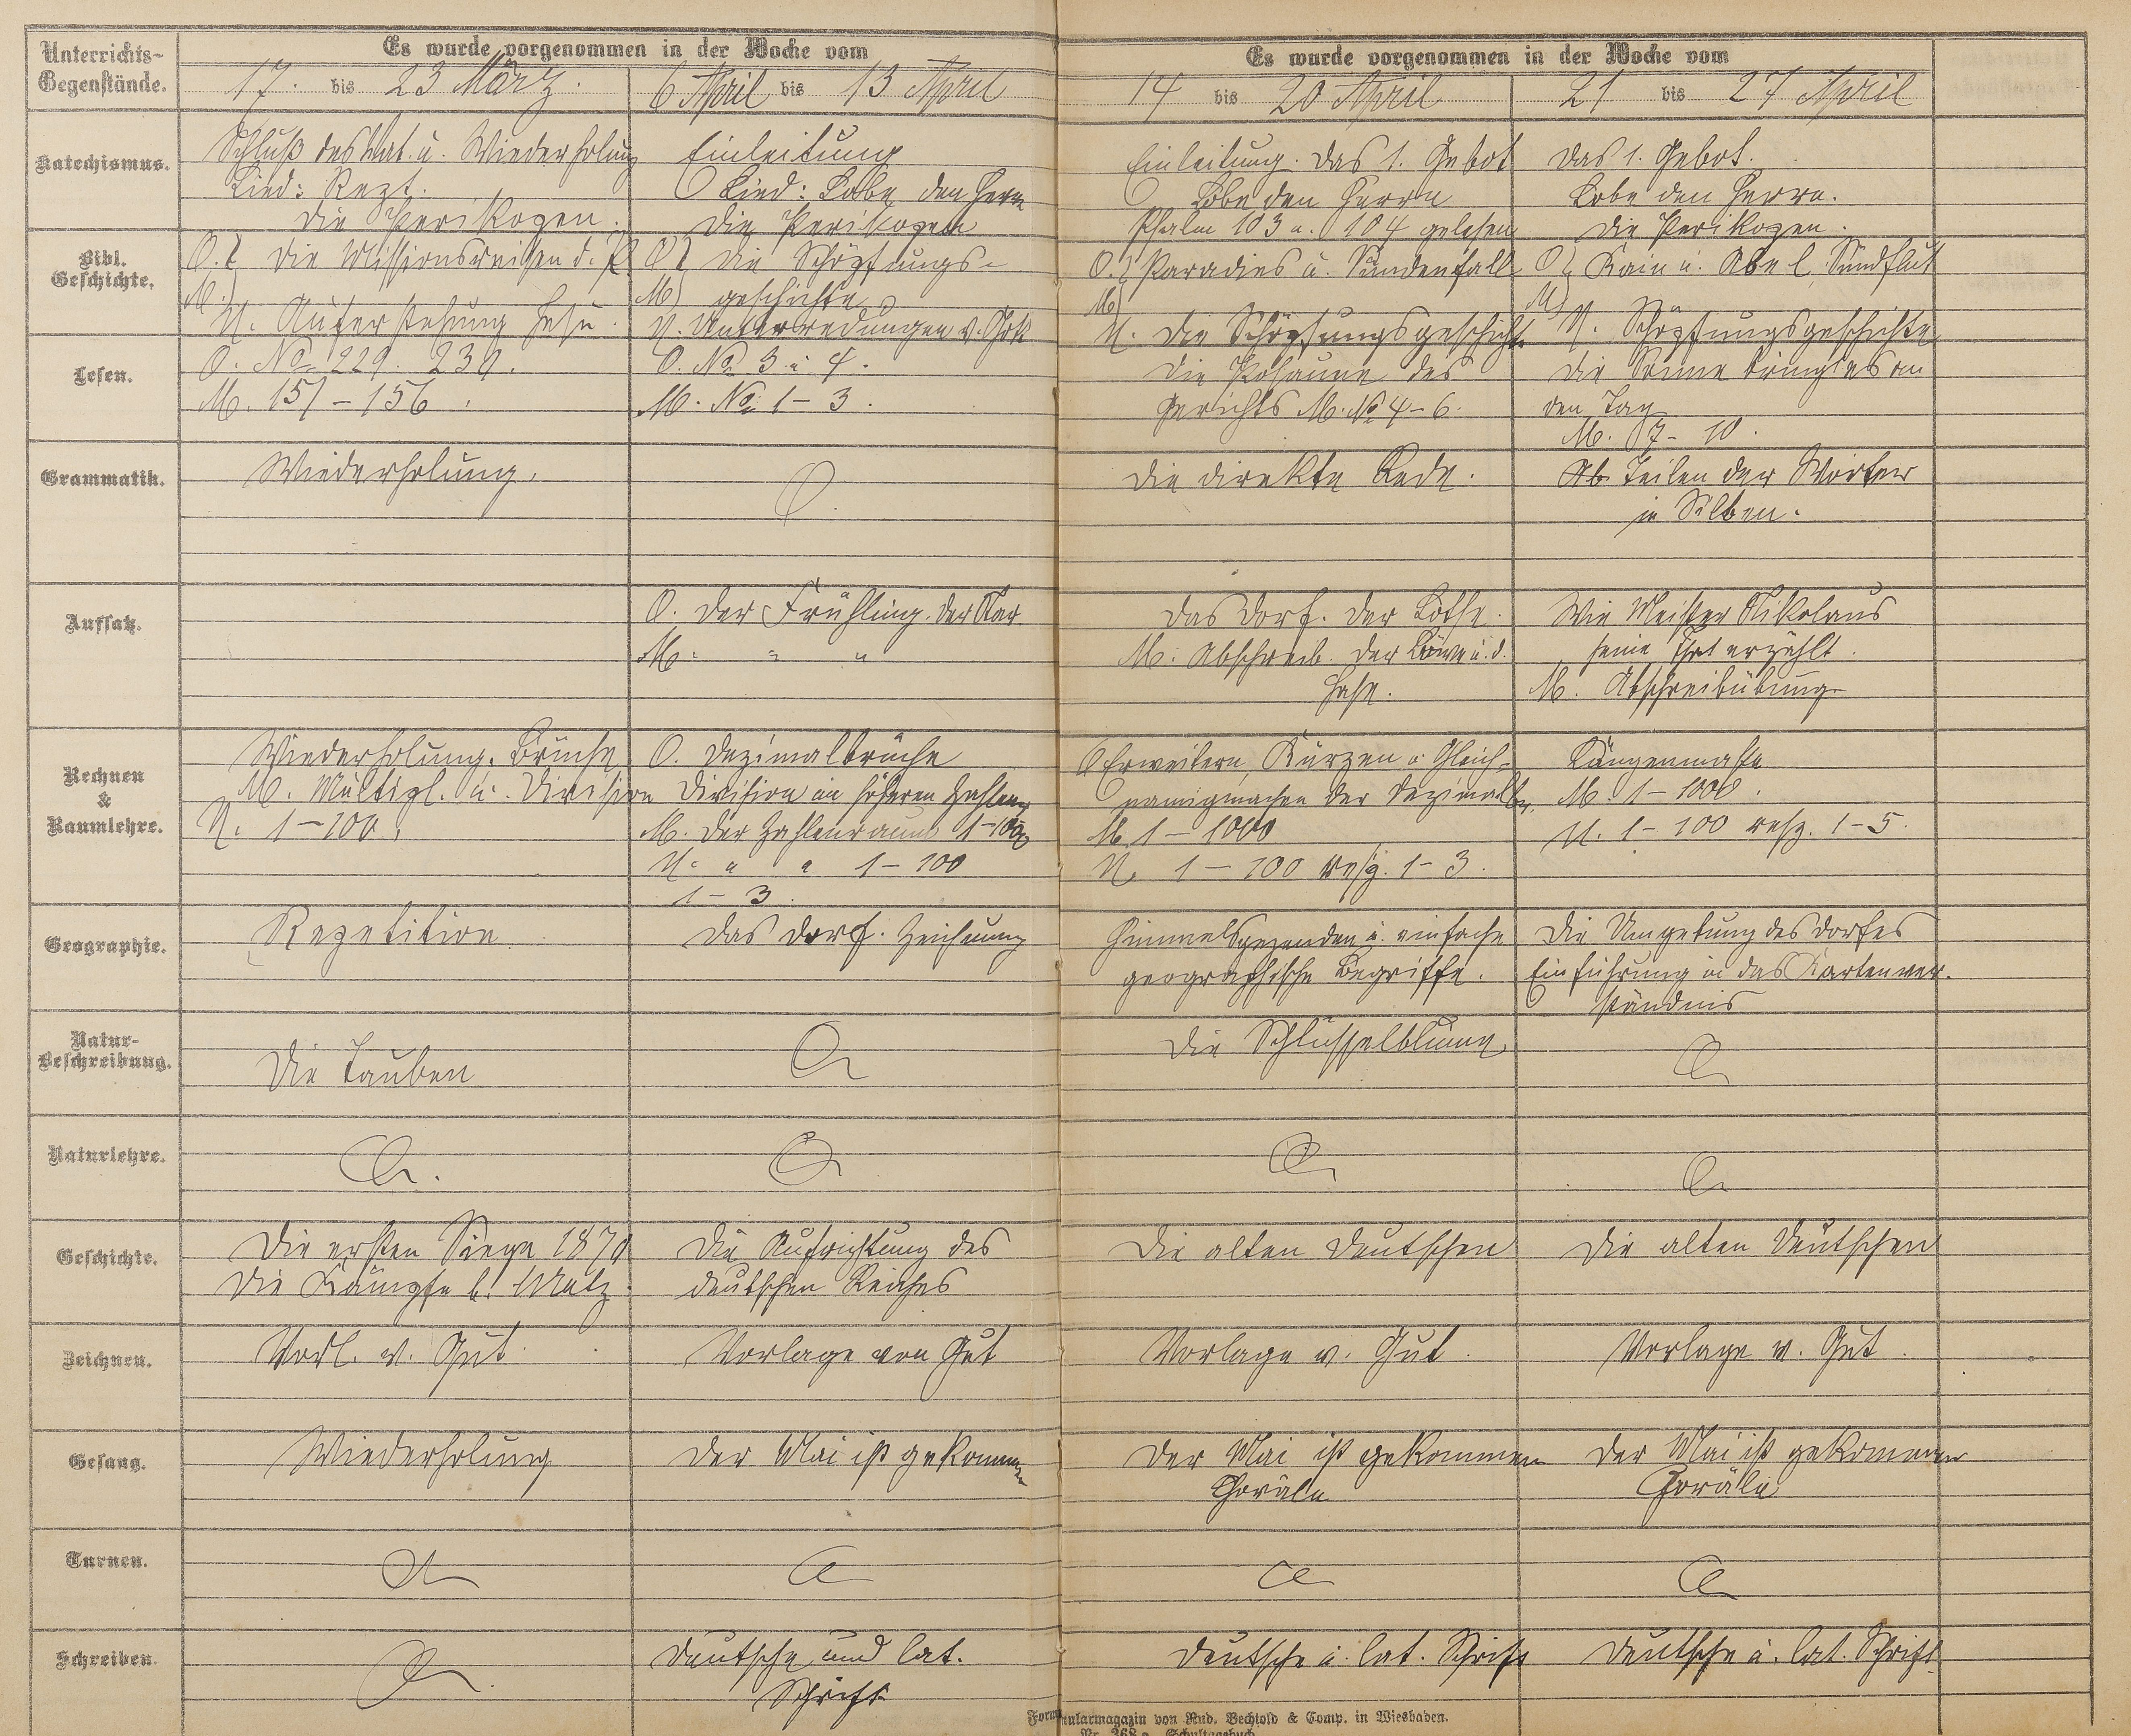 Unterrichts-
Gegenstände.
Es wurde vorgenommen in der Woche vom
Es wurde vorgenommen in der Woche vom
17. bis 23 März.
6 April bis 13 April
14 bis 20 April
21 bis 27 April
Katechismus.
Schluß des Kat. u. Wiederholung
Lied: Rept.
Die Perikopen.
Einleitung
Lied: Lobe den Herrn
Die Perikopen
Einleitung. Das 1. Gebot
Lobe den Herrn
Psalm 103 u. 104 gelesen
Das 1. Gebot.
Lobe den Herrn.
Die Perikopen.
Bibl.
Geschichte.
O. } Die Missionsreisen d. P.
M.
U. Auferstehung Jesu.
O } Die Schöpfungs-
M) geschichte
U. Unterredungen v. Gott
O. } Paradies u. Sündenfall
M)
U. Die Schöpfungsgeschichte
O } Kain u. Abel, Sündflut
M)
U. Schöpfungsgeschichte
Lesen.
O. No 229. 230.
M. 151 - 156.
O. No 3 u 4.
M. No 1 - 3.
Die Posaune des
Gerichts M. No 4 - 6.
Die Sonne bringt es an
den Tag
M. 7 - 10.
Grammatik.
Wiederholung.
Die direkte Rede.
Ab Teilen der Wörter
in Silben.
Aufsatz.
O. Der Frühling. Der Star
M. " "
Das Dorf. Der Lotse.
M. Abschreib. Der Löwe u. d.
Hase.
Wie Meister Nikolaus
seine That erzählt.
M. Abschreibübung
Rechnen
&
Raumlehre.
Wiederholung. Brüche
M. Multipl. u. Division
U. 1 - 100.
O. Dezimalbrüche
Division im höheren Zahlenr.
M. Der Zahlenraum 1-1000
U. " " 1 - 100
1 - 3.
O Erweitern, Kürzen u. Gleich-
namigmachen der Dezimalbr.
M 1 - 1000
U. 1 - 100 resp. 1 - 3.
Längenmaße
M. 1 - 1000.
U. 1 - 100 resp. 1 - 5.
Geographie.
Repetition.
Das Dorf. Zeichnung
Himmelsgegenden u. einfache
geographische Begriffe.
Die Umgebung des Dorfes
Einführung in das Kartenver-
ständnis
Natur-
Beschreibung.
Die Tauben
Die Schlüsselblume
Naturlehre.
Geschichte.
Die ersten Siege 1870
Die Kämpfe b. Metz.
Die Aufrichtung des
deutschen Reiches
Die alten Deutschen
Die alten Deutschen
Zeichnen.
Vorl. v. Gut.
Vorlage von Gut
Vorlage v. Gut.
Vorlage v. Gut.
Gesang.
Wiederholung
Der Mai ist gekommen
Der Mai ist gekommen
Choräle
Der Mai ist gekommen
Choräle
Turnen.
Schreiben.
Deutsche und lat.
Schrift
Deutsche u. lat. Schrift
Deutsche u. lat. Schrift
Formularmagazin von Rud. Bechtold & Comp. in Wiesbaden.
Schultagebuch